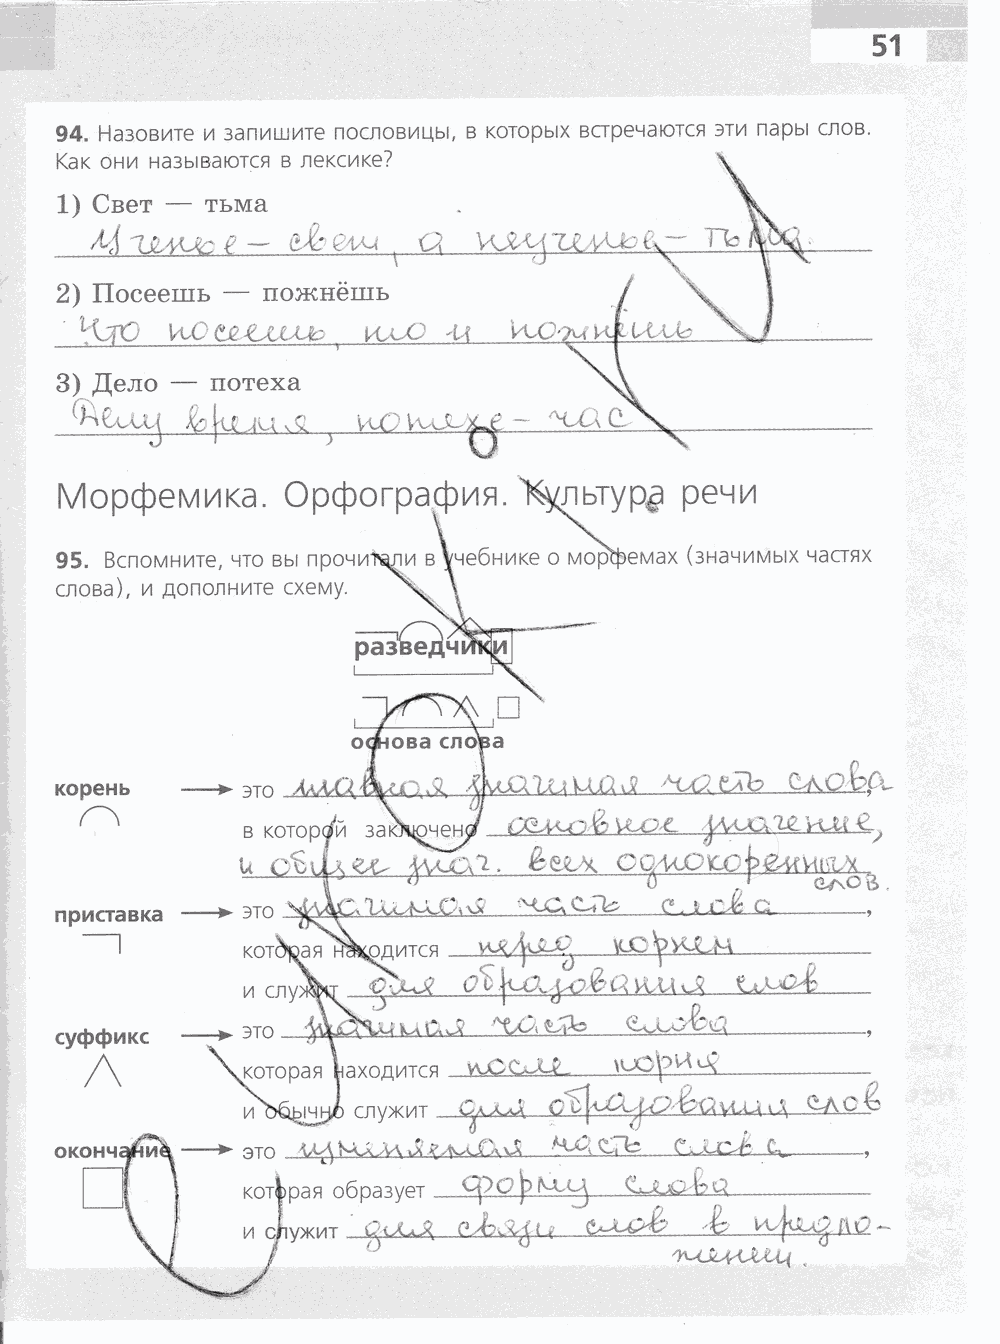 51
94. Назовите и запишите пословицы, в которых встречаются эти пары слов.
Как они называются в лексике?
1) Свет — тьма
Ученье – свет, а неученье – тьма.
2) Посеешь — пожнёшь
Что посеешь, то и пожнёшь
3) Дело — потеха
Делу время, потехе – час
Морфемика. Орфография. Культура речи
95. Вспомните, что вы прочитали в учебнике о морфемах (значимых частях
слова), и дополните схему.
разведчики
основа слова
корень → это главная значимая часть слова,
в которой заключено основное значение,
и общее знач. всех однокоренных
слов.
приставка → это значимая часть слова,
которая находится перед корнем
и служит для образования слов
суффикс → это значимая часть слова,
которая находится после корня
и обычно служит для образования слов
окончание → это изменяемая часть слова,
которая образует форму слова
и служит для связи слов в предло-
жении.